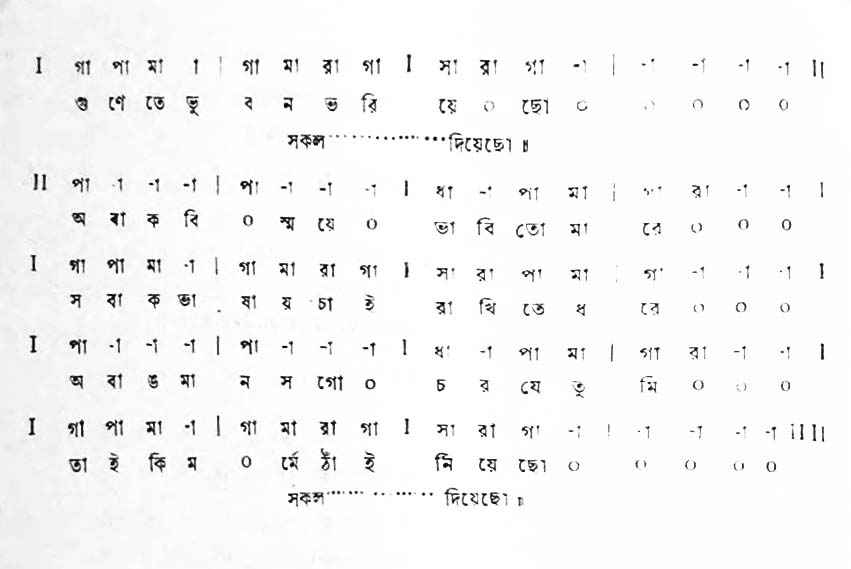 I গা পা মা া | গা মা রা গা I সা রা গা -া | -া -া -া -া II
গু ণে তে ভু ব ন ভ রি য়ে ০ ছো ০ ০ ০ ০ ০
সকল··················দিয়েছো॥
II পা -া -া -া | পা -া -া -া I ধা -া পা মা | গা রা -া -া I
অ বা ক বি ০ স্ম য়ে ০ ভা বি তো মা রে ০ ০ ০
I গা পা মা -া | গা মা রা গা I সা রা পা মা | গা -া -া -া I
স বা ক ভা ষা য় চা ই রা খি তে ধ রে ০ ০ ০
I পা -া -া -া | পা -া -া -া I ধা -া পা মা | গা রা -া -া I
অ বা ঙ মা ন স গো ০ চ র যে তু মি ০ ০ ০
I গা পা মা -া | গা মা রা গা I সা রা গা -া | -া -া -া -া IIII
তা ই কি ম ০ র্মে ঠাঁ ই নি য়ে ছো ০ ০ ০ ০ ০
সকল··················দিয়েছো॥